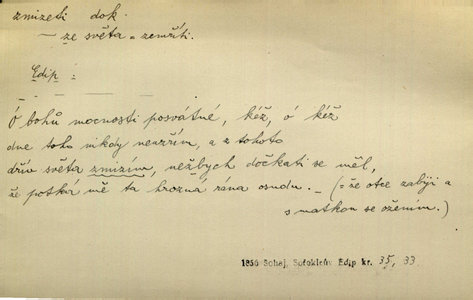 zmizeti dok.
— ze světa = zemříti.
Edip :
Ó bohů mocnosti posvátné, kéž, ó kéž
dne toho nikdy neuzřím, a z tohoto
dřív světa zmizím, nežbych dočkati se měl,
že potká mě ta hrozná rána osudu. – (= že otce zabiji a
s matkou se ožením.)
1956 Sohaj, Sofokleův Edip kr. 35, 33